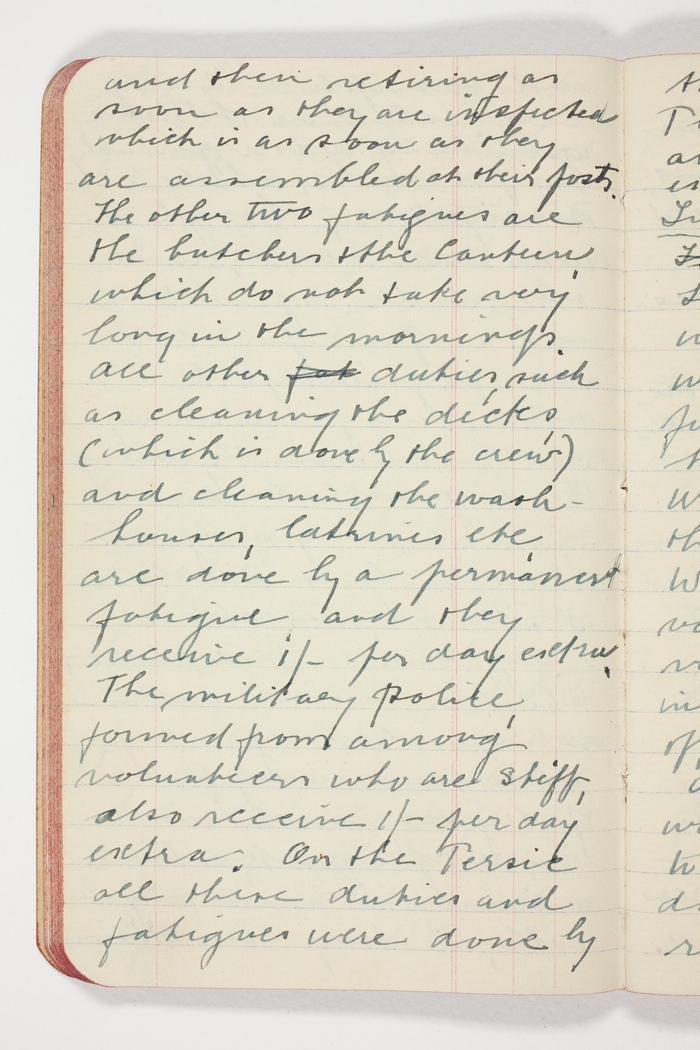 and then retiring as
soon as they are inspected
which is as soon as they
are assembled at their posts.
The other two fatigues are
the butchers & the Canteen
which do not take very
long in the mornings.
all other fat duties, such
as cleaning the decks,
(which is done by the crew)
and cleaning the wash-
houses, latrines etc
are done by a permanent
fatigue, and they
receive 1/- per day extra.
The military police,
formed from among
volunteers who are stiff,
also receive 1/- per day
extra. On the Persic
all these duties and
fatigues were done by